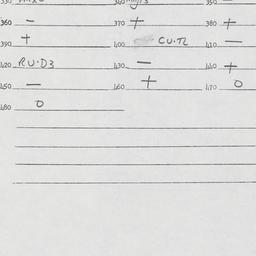 330 340 350 —
360 — 370 + 380 +
390 + 400 CU.TL 410 —
420 RU.D3 430 — 440 +
450 — 460 + 470 0
480 0